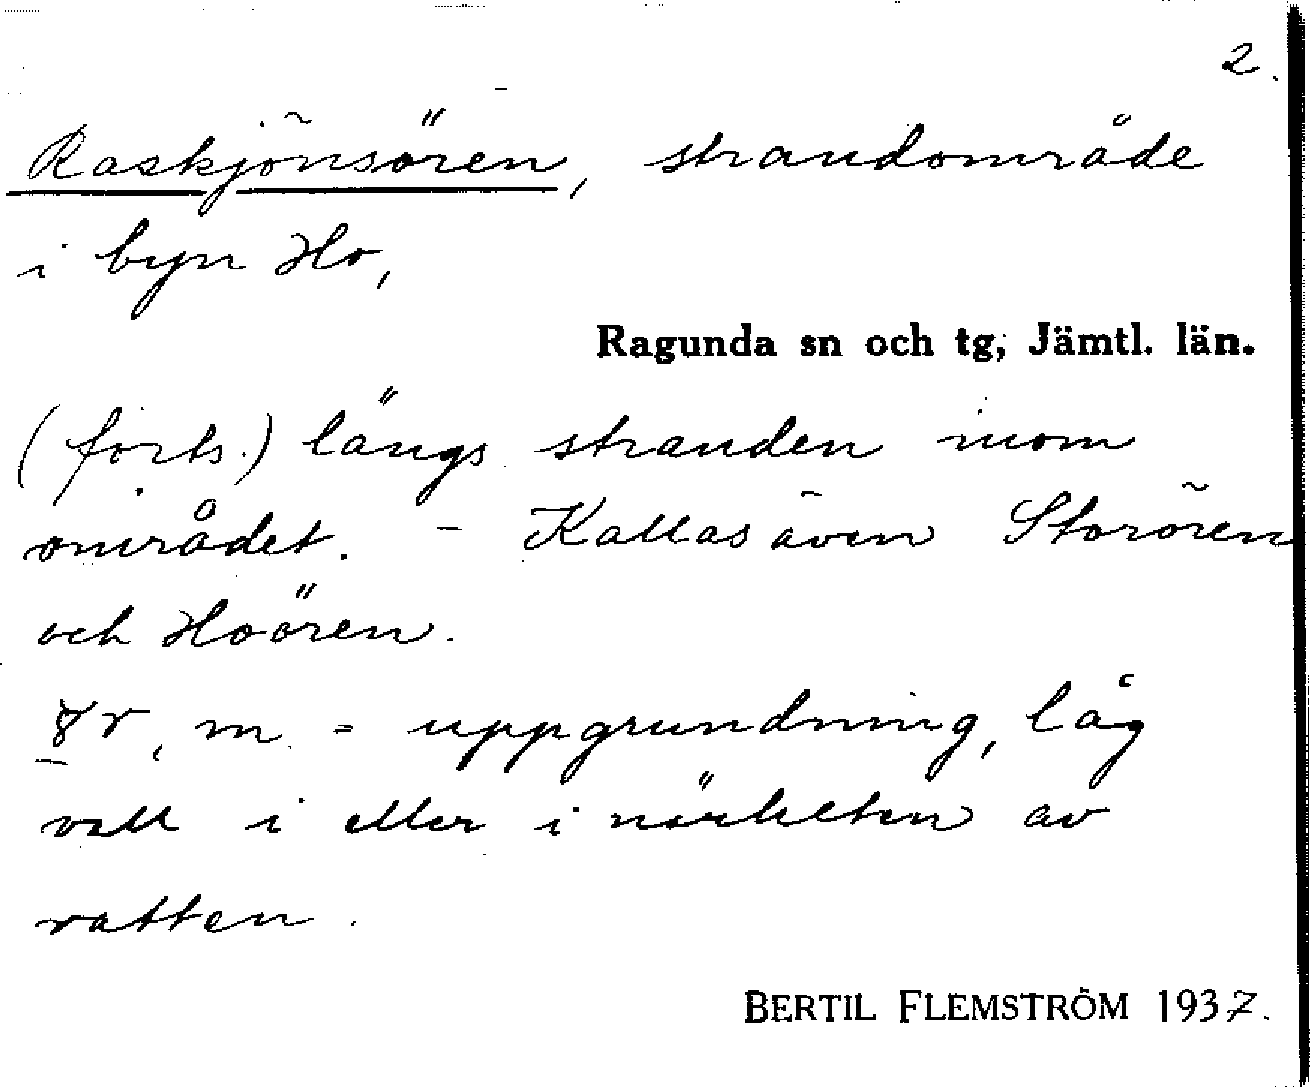 2.
Raskjönsören, strandområde
i byn Ho,
Ragunda sn och tg, Jämtl. län.
(forts.) längs stranden inom
området. - Kallas även Storören
och Hoören.
m = uppgrundning, låg
vall i eller i närheten av
vatten.
BERTIL FLEMSTRÖM 1937.